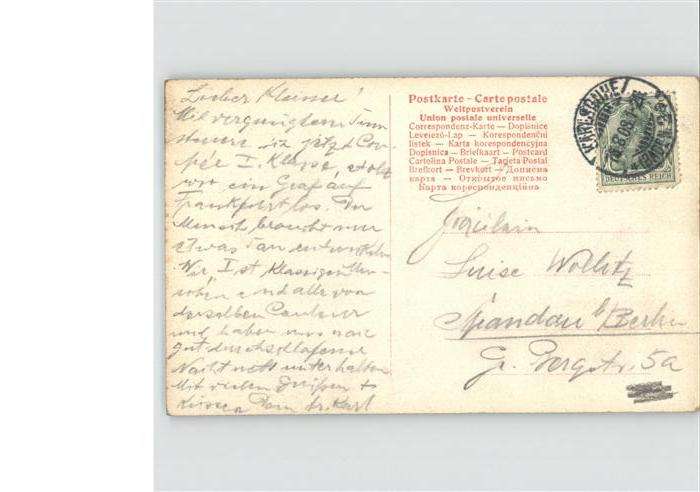 Lieber Klausner!
Mit vergnügtem Sinn
steuern ... jetzt Cou-
pée I. Klasse, stolz
wie ein Graf auf
Frankfurt los. Der
Mensch braucht nur
etwas an
Wir, I st klassigen Men-
schen und alle von
derselben Couleur
und haben uns nach
gut durchschlafener
Nacht nett unterhalten
Mit vielen Grüßen +
Küssen Dein Karl
Postkarte – Carte postale
Weltpostverein
Union postale universelle
Correspondenz-Karte — Dopisnice
Levelező-Lap — Korespondenční
lístek — Karta korespondencyjna
Dopisnica — Briefkaart — Postcard
Cartolina Postale — Tarjeta Postal
Brefkort — Brevkort — Дописна
карта — Открытое письмо
Карта кореспонденційна
KARLSRUHE
DEUTSCHES REICH
Fräulein
Luise Wollitz
Spandau b/Berlin
Gr. Bergstr. 5a